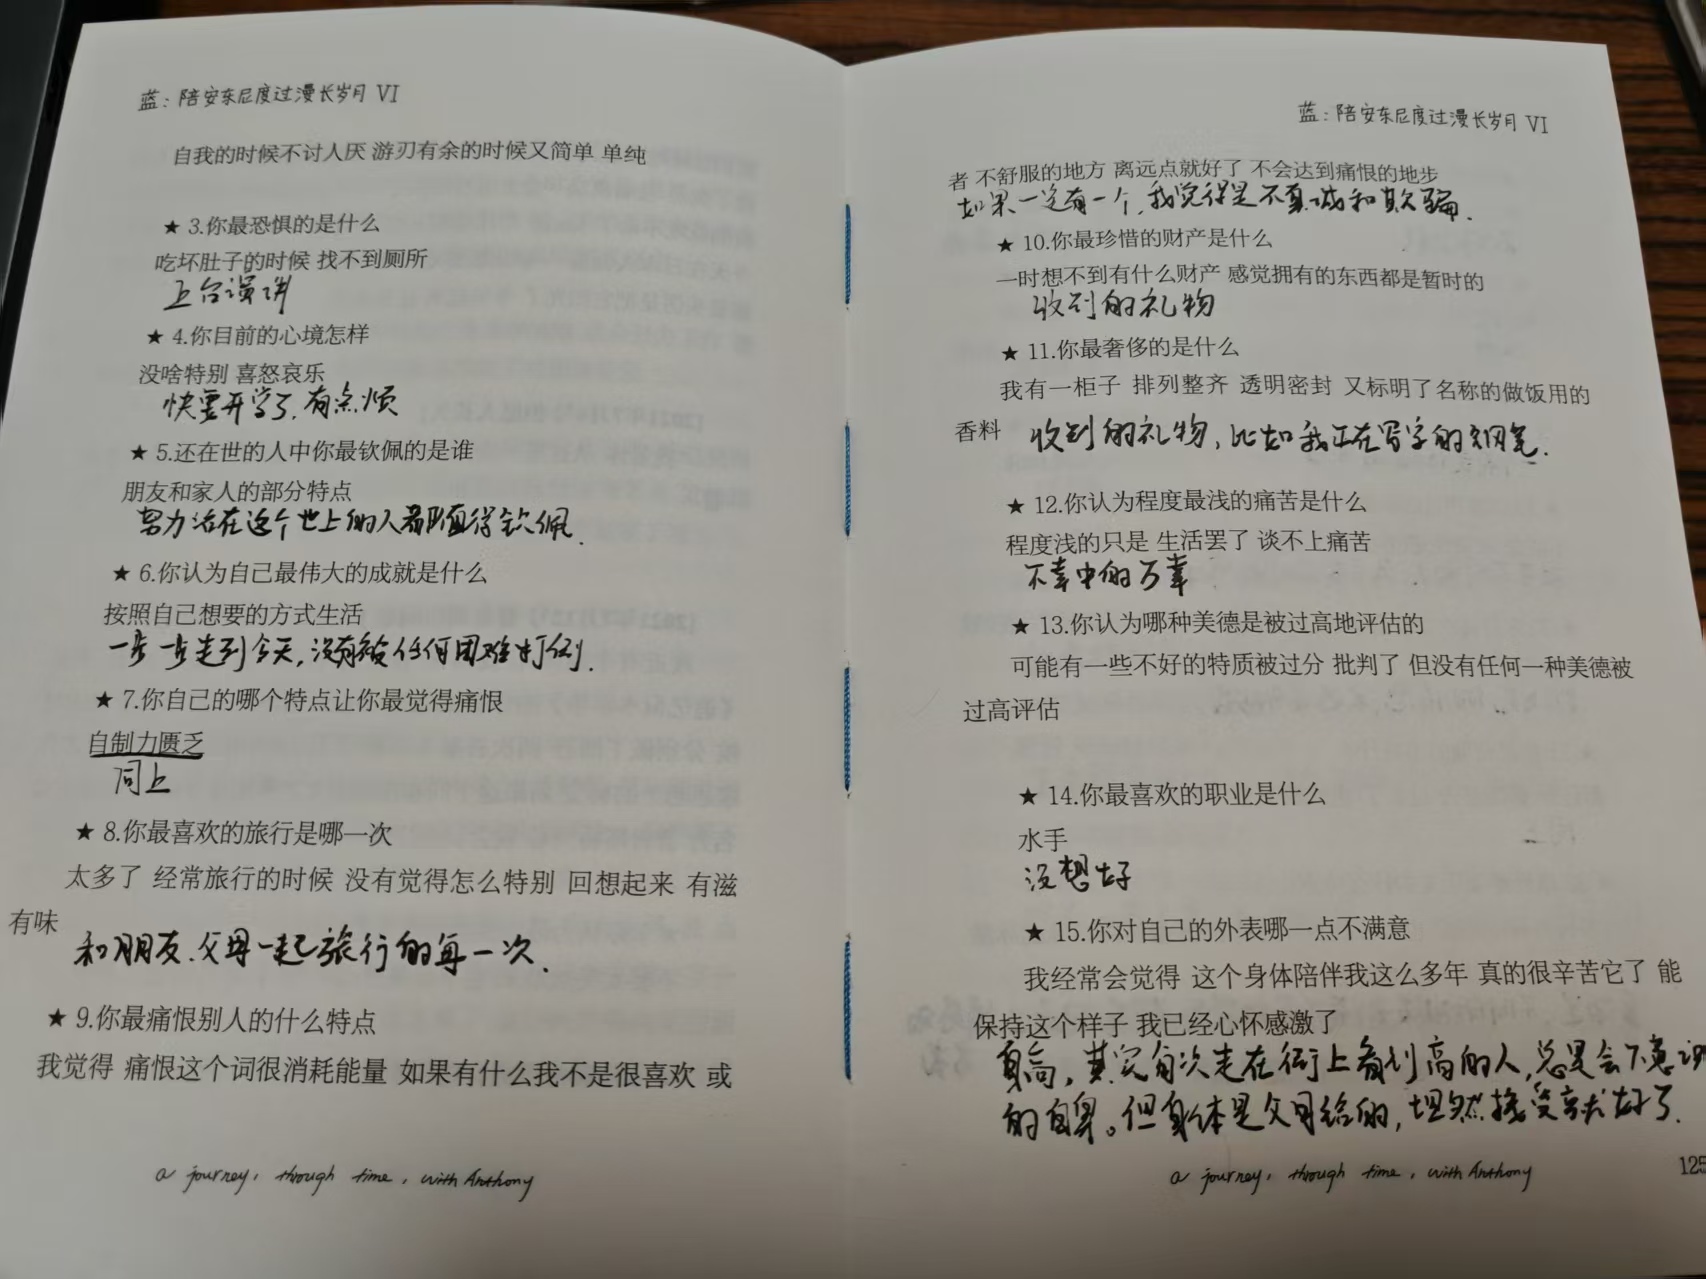 蓝：陪安东尼度过漫长岁月 VI
自我的时候不讨人厌 游刃有余的时候又简单 单纯
★ 3.你最恐惧的是什么
吃坏肚子的时候 找不到厕所
上台演讲
★ 4.你目前的心境怎样
没啥特别 喜怒哀乐
快要开学了，有点烦
★ 5.还在世的人中你最钦佩的是谁
朋友和家人的部分特点
努力活在这个世上的人都值得钦佩.
★ 6.你认为自己最伟大的成就是什么
按照自己想要的方式生活
一步一步走到今天,没有被任何困难打倒.
★ 7.你自己的哪个特点让你最觉得痛恨
自制力匮乏
同上
★ 8.你最喜欢的旅行是哪一次
太多了 经常旅行的时候 没有觉得怎么特别 回想起来 有滋
有味
和朋友、父母一起旅行的每一次.
★ 9.你最痛恨别人的什么特点
我觉得 痛恨这个词很消耗能量 如果有什么我不是很喜欢 或
a journey, through time, with Anthony
蓝：陪安东尼度过漫长岁月 VI
者 不舒服的地方 离远点就好了 不会达到痛恨的地步
如果一定有一个,我觉得是不真诚和欺骗.
★ 10.你最珍惜的财产是什么
一时想不到有什么财产 感觉拥有的东西都是暂时的
收到的礼物
★ 11.你最奢侈的是什么
我有一柜子 排列整齐 透明密封 又标明了名称的做饭用的
香料
收到的礼物,比如我正在写字的钢笔.
★ 12.你认为程度最浅的痛苦是什么
程度浅的只是 生活罢了 谈不上痛苦
不幸中的万幸
★ 13.你认为哪种美德是被过高地评估的
可能有一些不好的特质被过分 批判了 但没有任何一种美德被
过高评估
★ 14.你最喜欢的职业是什么
水手
没想好
★ 15.你对自己的外表哪一点不满意
我经常会觉得 这个身体陪伴我这么多年 真的很辛苦它了 能
保持这个样子 我已经心怀感激了
身高，其实每次走在街上看到高的人,总是会下意识
的自卑。但身体是父母给的,坦然接受就好了.
a journey, through time, with Anthony
125